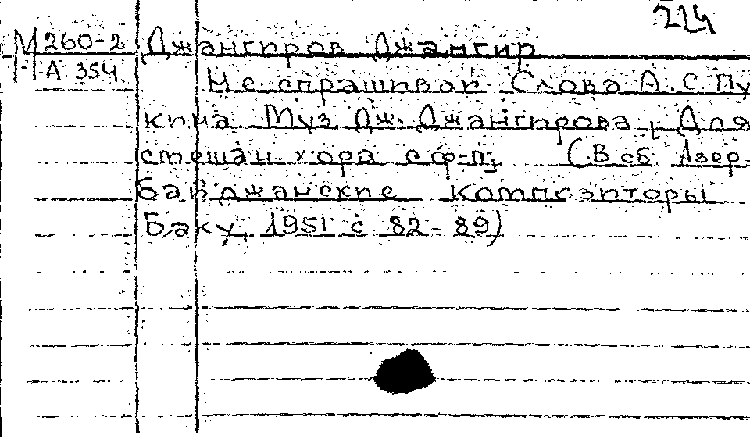 224
М260-2 Джангиров Джангир
А 354 Не спрашивай Слова А.С.Пу
кина Муз Дж. Джангирова, Для
смешан хора с ф-п, (В сб Азер-
байджанские композиторы
Баку, 1951 с 82-89)